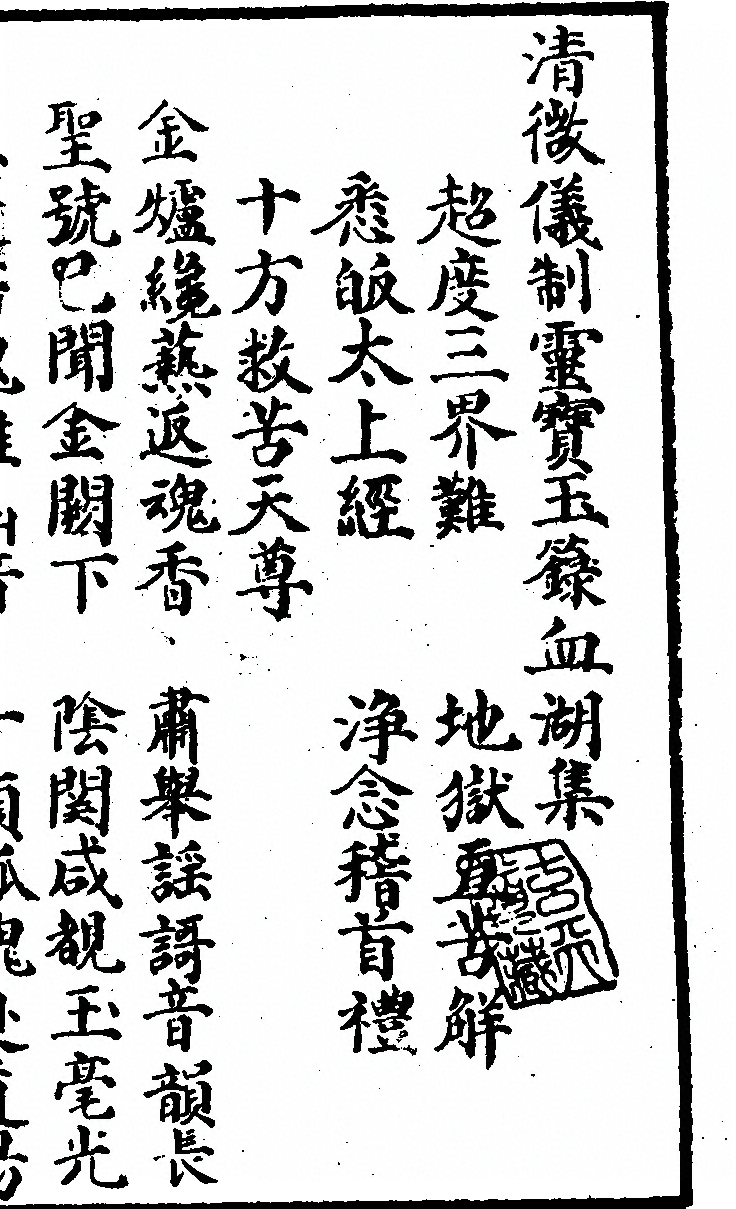 清微儀制靈寶玉籙血湖集
超度三界難 地獄五苦解
悉皈太上經 淨念稽首禮
十方救苦天尊
金爐纔爇返魂香、肅舉謡謌音韻長
聖號已聞金闕下 陰関咸覩玉毫光